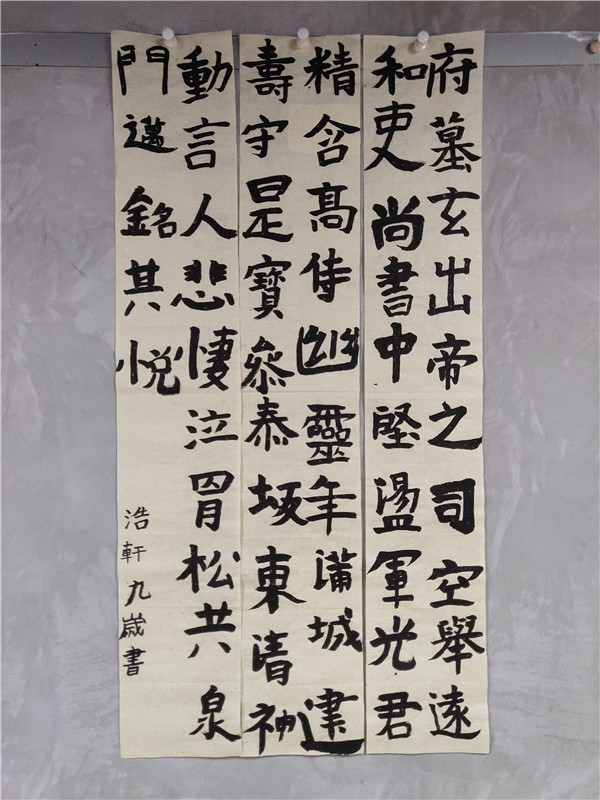 府墓玄出帝之司空舉遠
和吏尚書中堅盪軍光君
精含高侍幽靈年滿城建
壽守是寶叅泰坂東清神
動言人悲悽泣胃松共泉
門邁銘其悅
浩軒九歲書